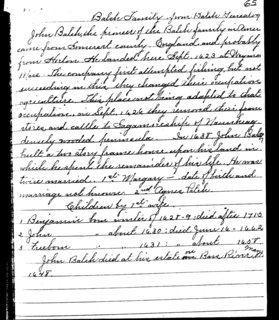 65
Balch Family from Balch Genealogy
John Balch the pioneer of the Balch family in Amer
came from Somerset county, England and probably
from Horton. He landed here Sept. 1623 at Weymouth
The company first attempted fishing but not
succeeding in this they changed their occupation
agriculture. This place not being adapted to that
occupation, in Sept. 1626 they removed their
stores and cattle to a
densely wooded peninsula. In 1638 John Balch
built a two story frame house upon his land in
which he spent the remainder of his life. He was
twice married. 1st Margary — date of birth and
marriage not known. 2nd Agnes
Children by 1st wife.
1 Benjamin born winter of 1628-9; died after 1715
2 John " about 1630; died June 16 - 1662
3 Freeborn " 1631; " about 1658
John Balch died at his estate on Bass River, May
1648.